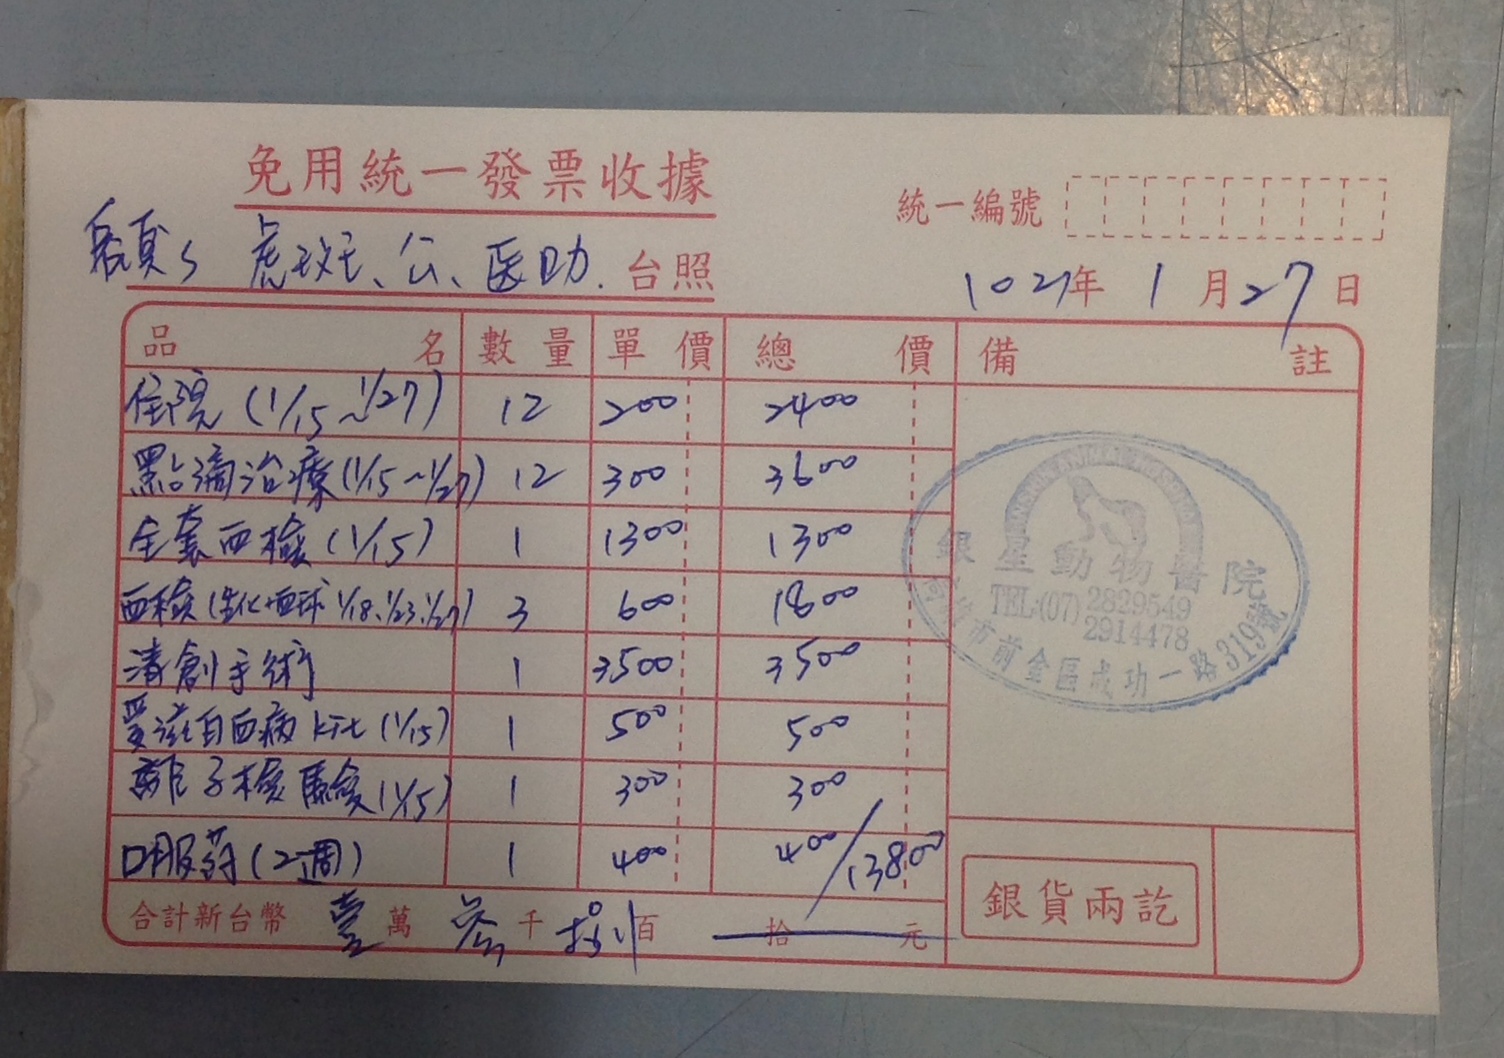 免用統一發票收據
統一編號
虎斑、公、医助. 台照
102年 1月27日
品名 數量 單價 總價 備註
住院 (1/15~1/27) 12 200 2400
點滴治療 (1/15~1/27) 12 300 3600
全套血檢 (1/15) 1 1300 1300
血檢 (生化+血球 1/18、1/23、1/27) 3 600 1800
清創手術 1 3500 3500
愛滋白血病 kit (1/15) 1 500 500
離子檢驗 (1/15) 1 300 300
口服葯 (2週) 1 400 400
13800
合計新台幣 壹萬 参千 捌百 拾 元
銀貨兩訖
銀星動物醫院
TEL:(07) 2829549
2914478
市前金區成功一路319號